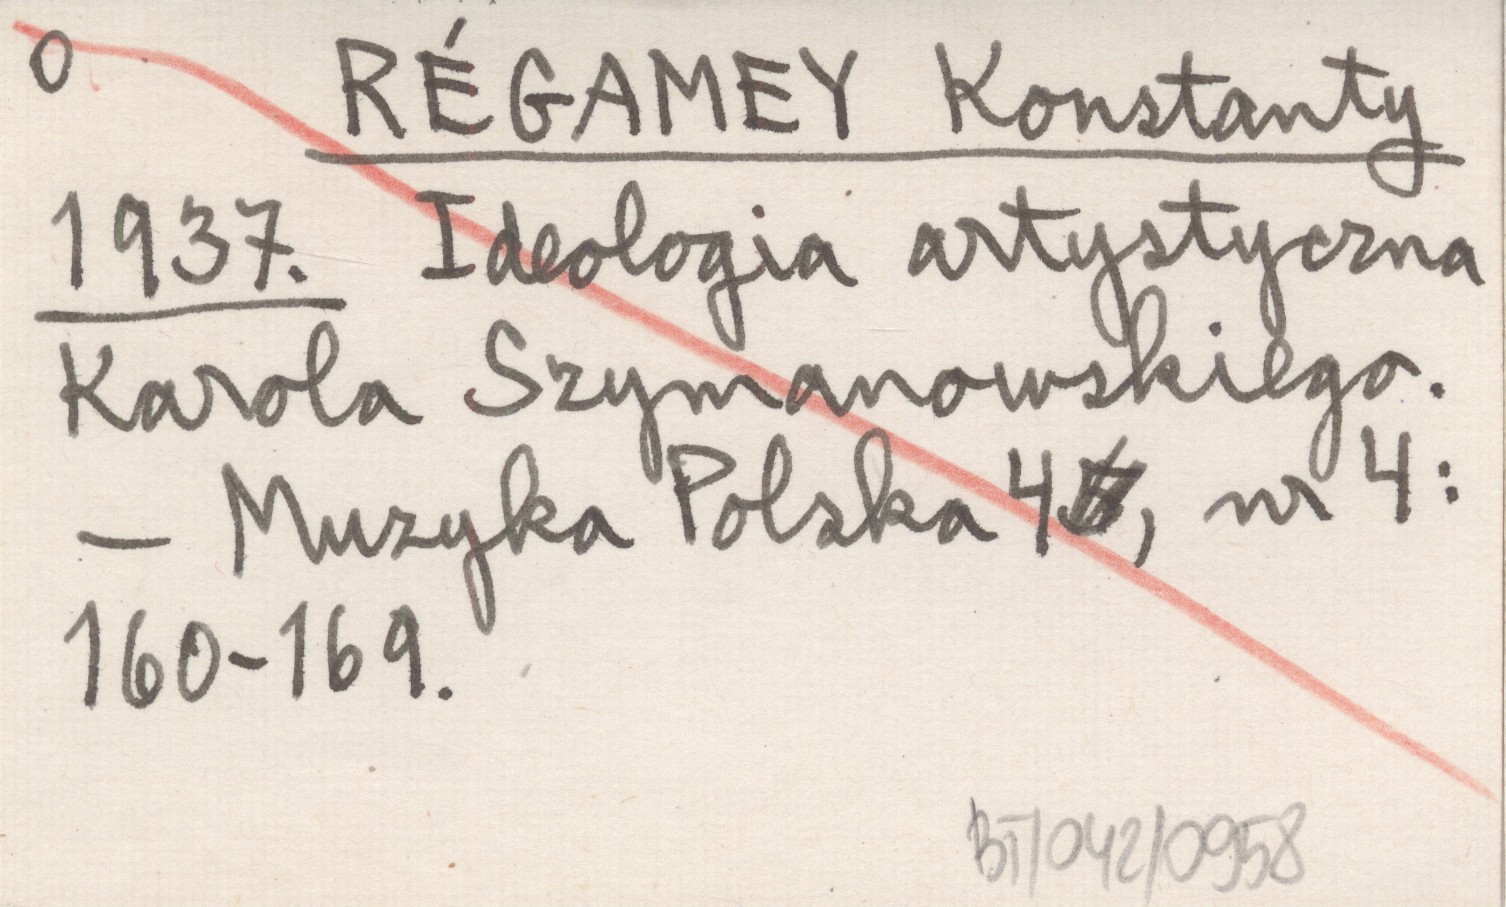 O RÉGAMEY Konstanty
1937. Ideologia artystyczna
Karola Szymanowskiego.
— Muzyka Polska 4, nr 4:
160-169.
BT/042/0958